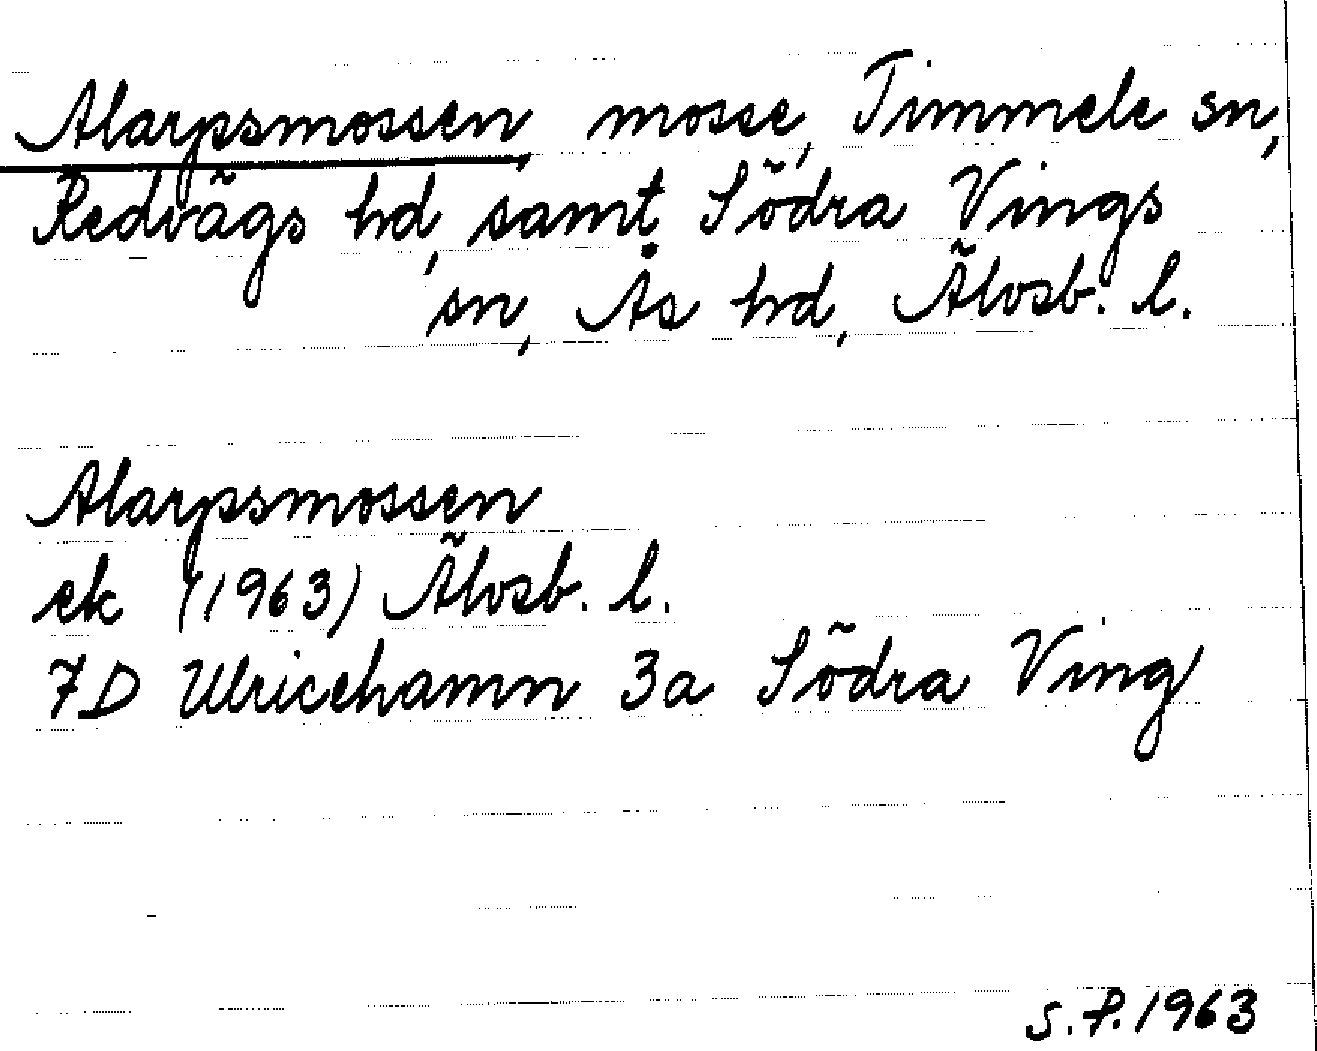 Alarpsmossen, mosse, Timmele sn,
Redvägs hd, samt Södra Vings
sn, Ås hd, Älvsb. l.
Alarpsmossen
ek (1963) Älvsb. l.
7D Ulricehamn 3a Södra Ving
S.P. 1963